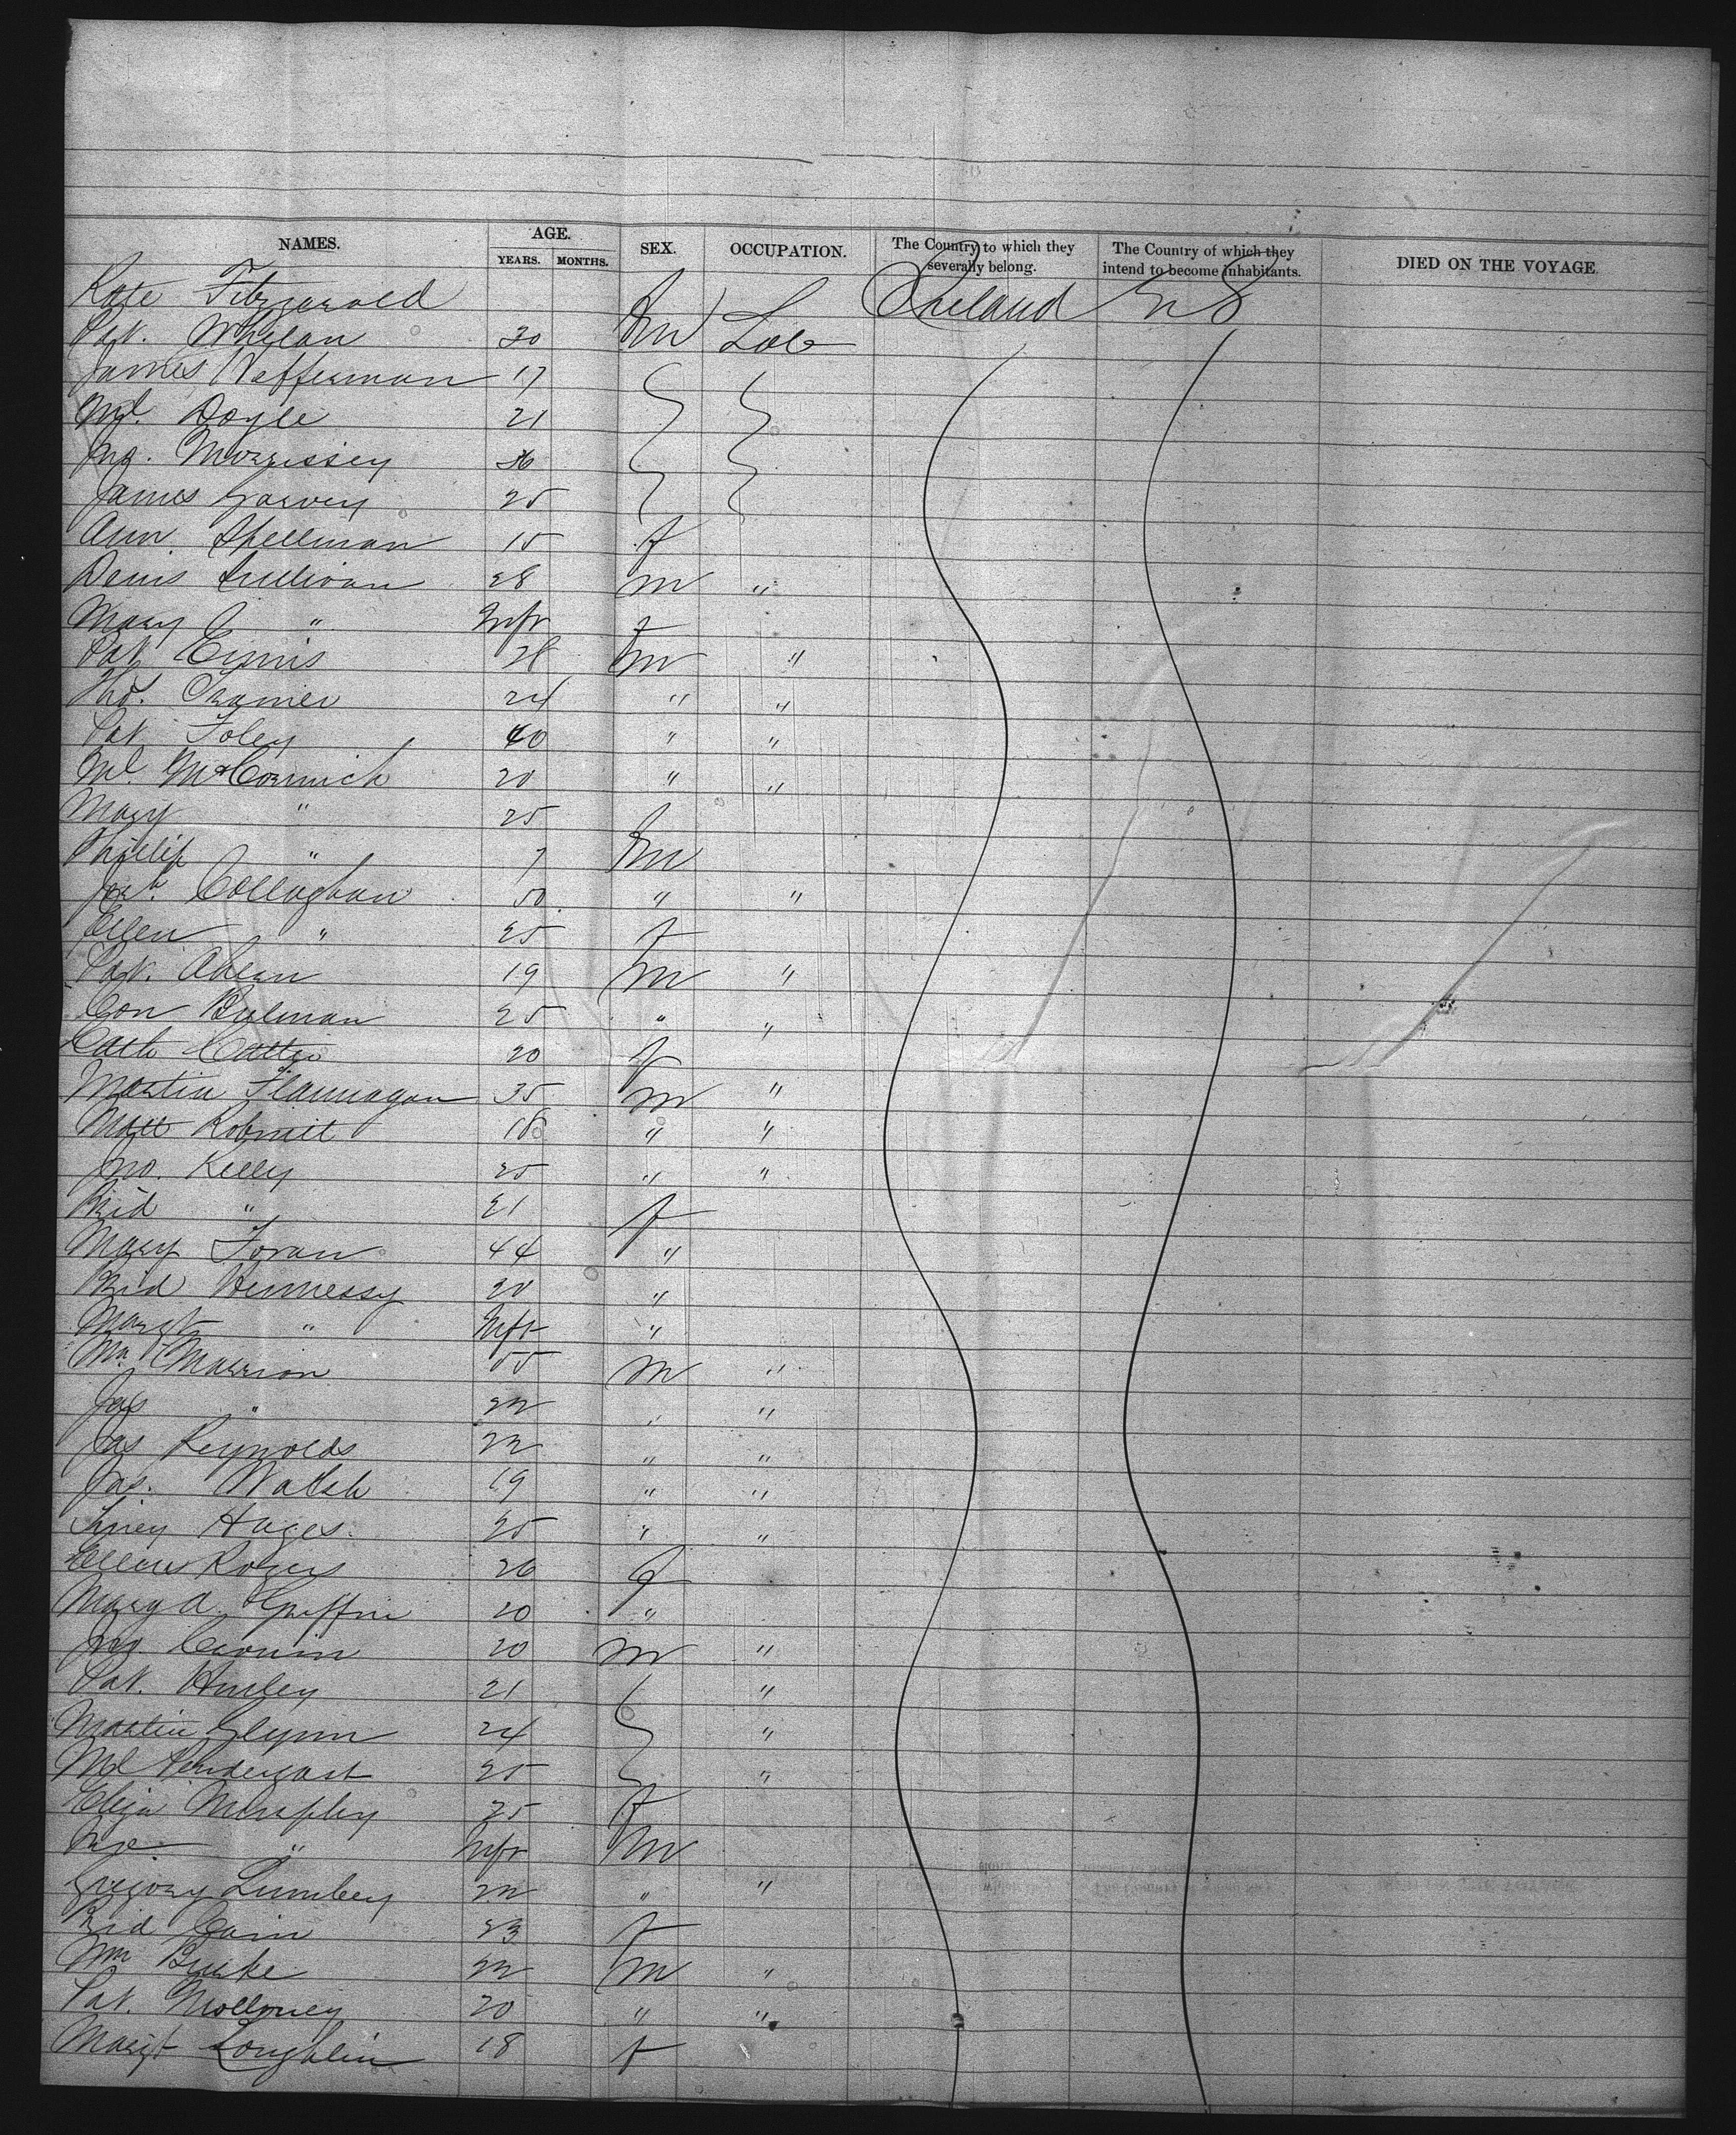 NAMES. AGE. YEARS. MONTHS. SEX. OCCUPATION. The Country to which they severally belong. The Country of which they intend to become inhabitants. DIED ON THE VOYAGE.
Kate Fitzgerald Ireland U S
Pat. Whelan 30 m Lab
James Hefferman 17
Ml. Doyle 21
Jno. Morrissey
James Garvey 25
Ann Spellman 15 f
Denis Sullivan 28 m "
Mary " Inft f
Pat 28 m "
Thos. Cramer 24 " "
Pat Foley 40 " "
Ml McCormick 20 " "
Mary " 25
Phillip " 7 m
Callaghan 50 " "
Ellen " 25 f
Pat. Ahern 19 m "
Con 25 " "
Cath 20 f
Martin Flannagan 35 m "
Matt 18 " "
Jno. Kelly 25 " "
Brid " 21 f
Mary Foran 44 "
Brid Hennessy 20 "
Margt " Inft "
Wm Marrion 55 m "
Jas " 22 " "
Jas Reynolds 22 " "
Jas. Walsh 19 " "
Hayes. 25 " "
Ellen Rogers 26 f
Mary A Griffin 20 "
Jno Cronin 20 m "
Pat. Hurley 21 "
Martin Glynn 24 "
Ml Pendergast 25 "
Eliza Murphy 25 f
" Inft m
Gregory 22 " "
Brid Cain 23 f
Wm Burke 22 m "
Pat. Molloney 20 " "
Margt Loughlin 18 f